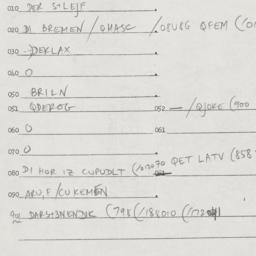 010 DER S+LEJF
020 DI BREMEN / QMASC /.OPUBG QFEM (/01
030 -)DEKLAX
040 O
050 BRILN
051 QDEROG 052 — /QJOKE (900
060 O 061
070 O
080 DI HOR IZ CUPUDLT (/017070 QET LATV (858
090 ARU,F/CUKEMEN
901 (798 (/188010 (/172